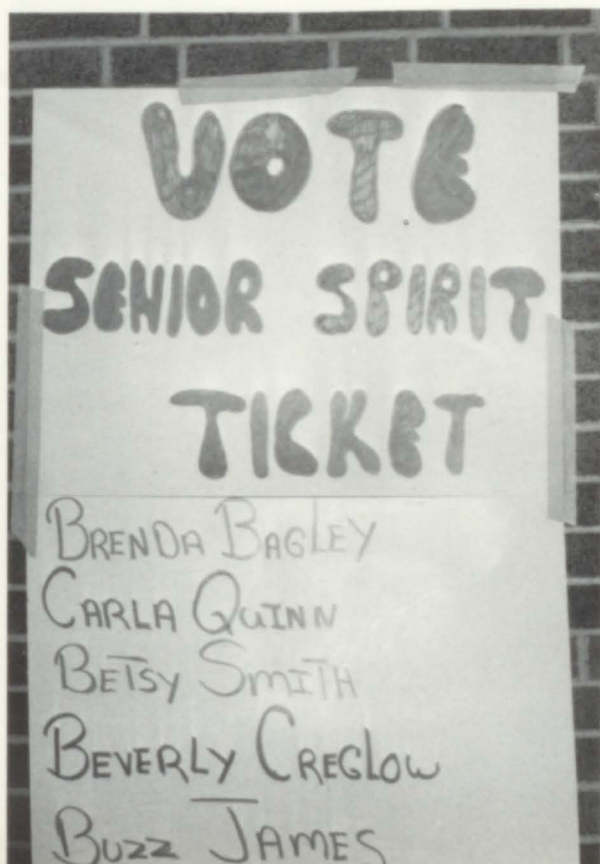 VOTE
SENIOR SPIRIT
TICKET
BRENDA BAGLEY
CARLA QUINN
BETSY SMITH
BEVERLY CREGLOW
BUZZ JAMES